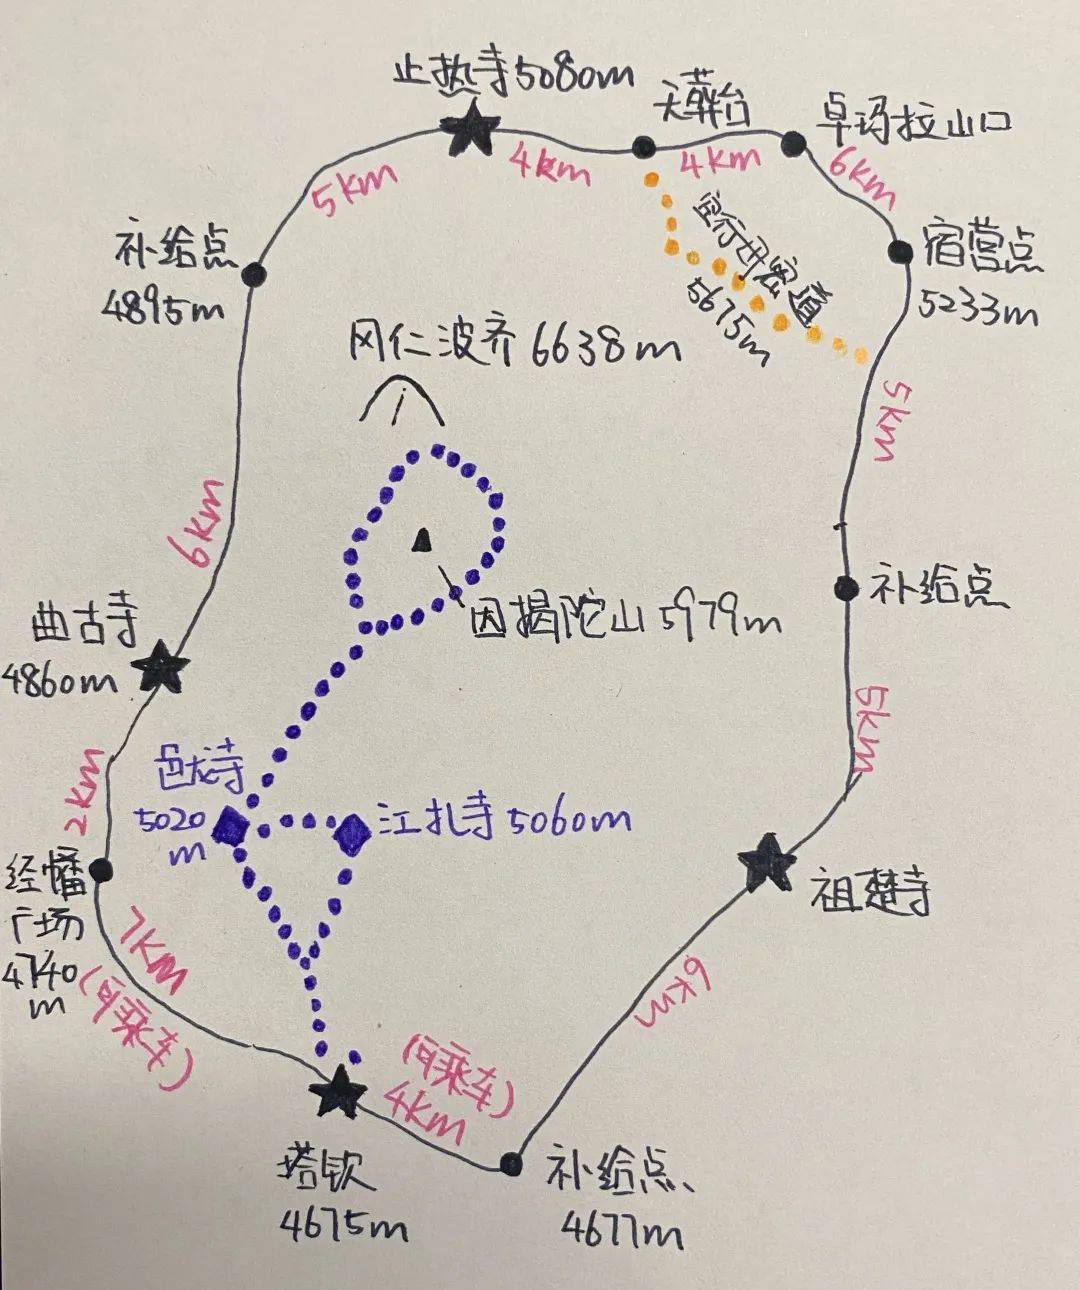 止热寺5080m
天葬台
卓玛拉山口
5km
4km
4km
6km
补给点
4895m
空行母密道
5675m
宿营点
5233m
冈仁波齐 6638m
5km
6km
补给点
因揭陀山 5979m
曲古寺
4860m
5km
2km
色龙寺
5020
m
江扎寺 5060m
经幡
广场
4740
m
祖楚寺
7km
(可乘车)
6km
(可乘车)
4km
塔钦
4675m
补给点
4677m